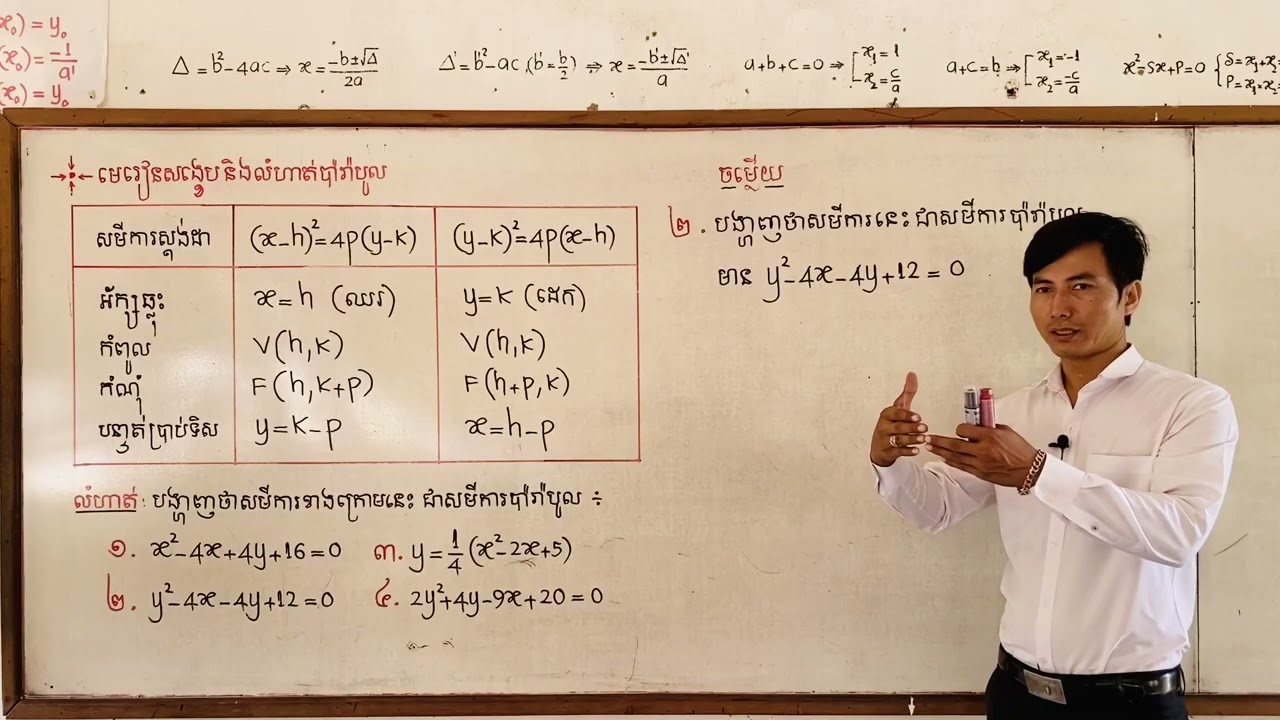 x₀) = y₀
(x₀) = -1/a'
(x₀) = y₀
Δ = b² - 4ac ⇒ x = (-b ± √Δ)/2a
Δ' = b'² - ac (b' = b/2) ⇒ x = (-b' ± √Δ')/a
a+b+c=0 ⇒ [x₁ = 1
x₂ = c/a
a+c=b ⇒ [x₁ = -1
x₂ = -c/a
x² - Sx + P = 0 {S = x₁ + x₂
P = x₁ × x₂
មេរៀនសង្ខេប និងលំហាត់ប៉ារ៉ាបូល
សមីការស្តង់ដា (x-h)² = 4p(y-k) (y-k)² = 4p(x-h)
អ័ក្សឆ្លុះ x = h (ឈរ) y = k (ដេក)
កំពូល V(h,k) V(h,k)
កំណុំ F(h,k+p) F(h+p,k)
បន្ទាត់ប្រាប់ទិស y = k-p x = h-p
លំហាត់ : បង្ហាញថាសមីការខាងក្រោមនេះ ជាសមីការប៉ារ៉ាបូល ÷
១. x² - 4x + 4y + 16 = 0 ៣. y = 1/4 (x² - 2x + 5)
២. y² - 4x - 4y + 12 = 0 ៤. 2y² + 4y - 9x + 20 = 0
ចម្លើយ
២. បង្ហាញថាសមីការនេះ ជាសមីការប៉ារ៉ាបូល
មាន y² - 4x - 4y + 12 = 0